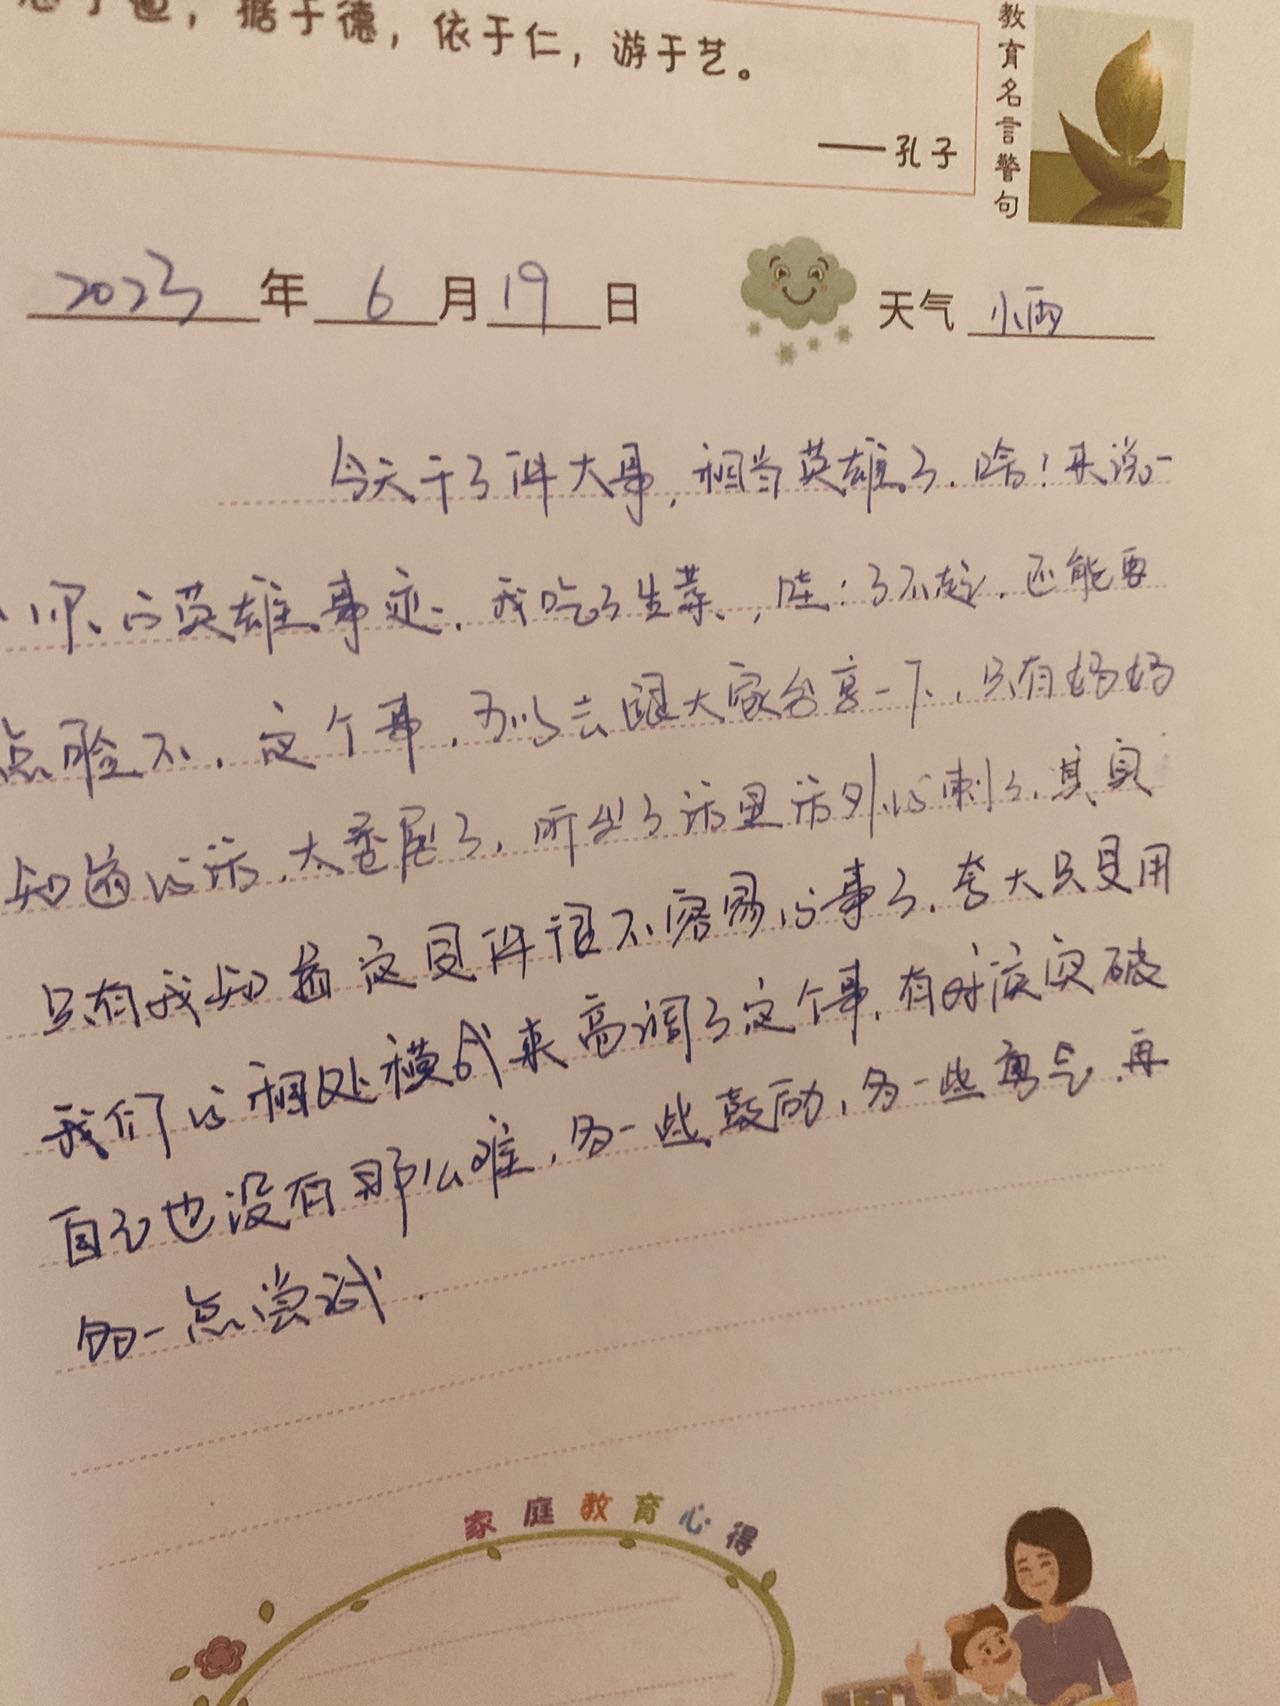 志于道，据于德，依于仁，游于艺。
——孔子
教育名言警句
2023年6月19日 天气 小雨
今天干了件大事，相当英雄了。啥！来说一
你的英雄事迹。我吃了生菜，哇：了不起。还能要
点脸不。这个事，可以去跟大家分享一下，只有妈妈
知道的话，太委屈了，听出了话里话外的刺了。其实
只有我知道这是件很不容易的事了。夸大只是用
我们的相处模式来高调了这个事，有时候突破
自己也没有那么难，多一些鼓励，多一些勇气，再
多一点尝试.
家庭教育心得